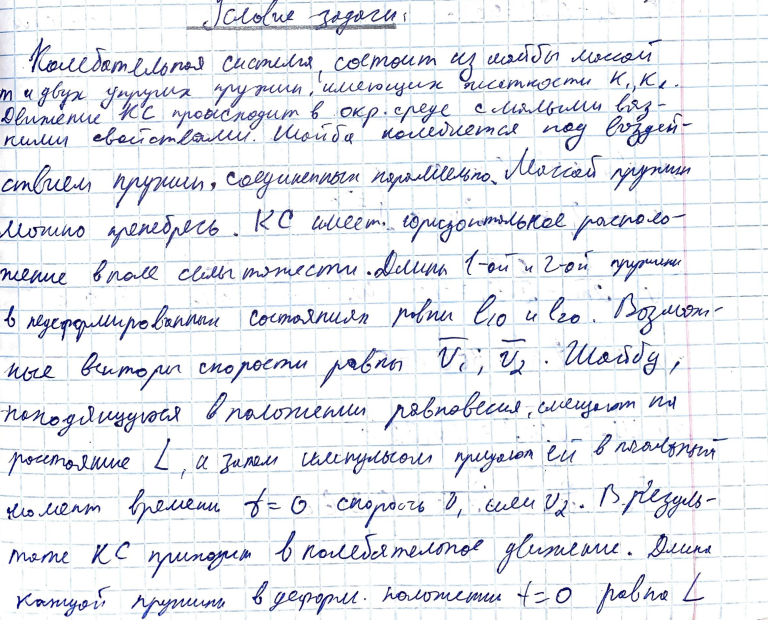 Условие задачи:
Колебательная система, состоит из шайбы массой
m и двух упругих пружин, имеющих жесткости K₁, K₂.
Движение КС происходит в окр. среде с малыми вяз-
кими свойствами. Шайба колеблется под воздей-
ствием пружин, соединенных параллельно. Массой пружин
можно пренебречь. КС имеет горизонтальное располо-
жение в поле силы тяжести. Длины 1-ой и 2-ой пружины
в недеформированных состояниях равны l₁₀ и l₂₀. Возмож-
ные векторы скорости равны V̅₁, V̅₂. Шайбу,
находящуюся в положении равновесия, смещают на
расстояние L, а затем импульсом придают ей в начальный
момент времени t=0 скорость υ₁ или υ₂. В резуль-
тате КС приходит в колебательное движение. Длина
каждой пружины в деформ. положении t=0 равна L